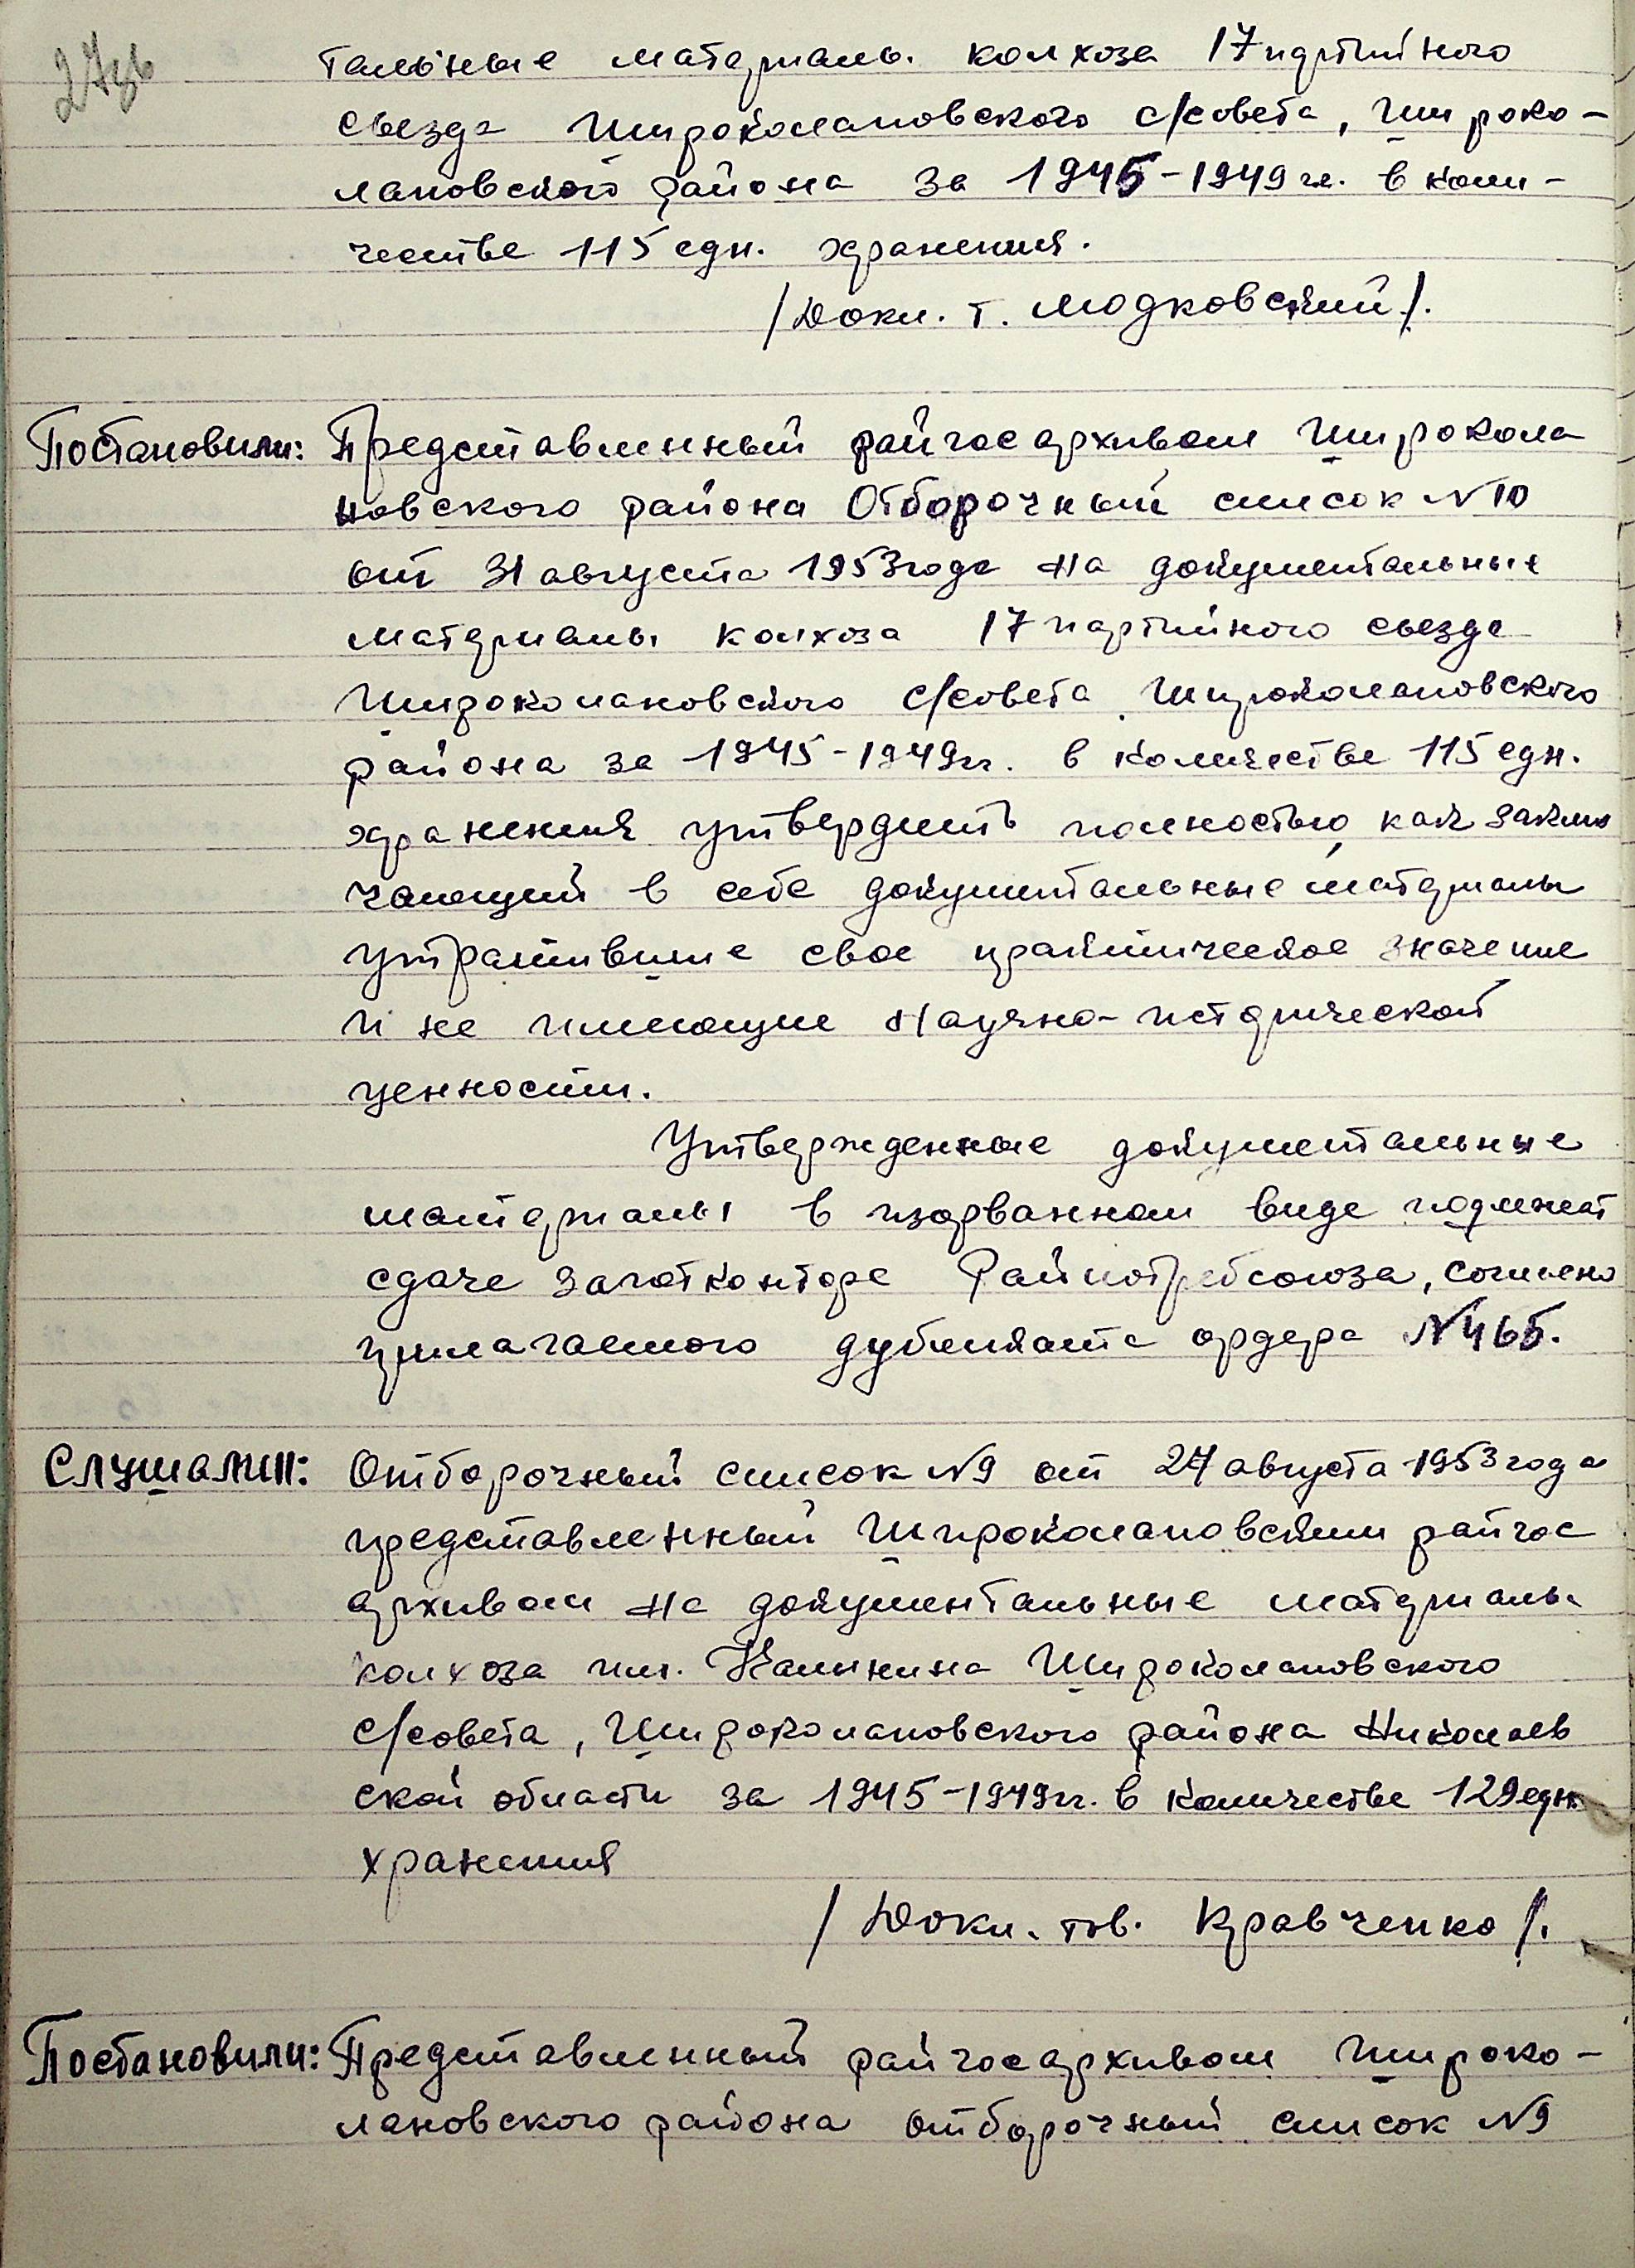 27зв
тальные материалы колхоза 17 партийного
съезда Широколановского с/совета, Широко-
лановского района за 1945-1949 гг. в коли-
честве 115 едн. хранения.
/Докл. т. Модковский/.
Постановили: Представленный райгосархивом Широкола
новского района Отборочный список N 10
от 31 августа 1953 года на документальные
материалы колхоза 17 партийного съезда
Широколановского с/совета Широколановского
района за 1945-1949 гг. в количестве 115 едн.
хранения утвердить полностью, как заклю
чающий в себе документальные материалы
утратившие свое практическое значение
и не имеющие научно-исторической
ценности.
Утвержденные документальные
материалы в изорванном виде подлежат
сдаче Заготконторе Райпотребсоюза, согласно
прилагаемого дубликата ордера N 465.
Слушали: Отборочный список N9 от 27 августа 1953 года
представленный Широколановским райгос
архивом на документальные материалы
колхоза им. Калинина Широколановского
с/совета, Широколановского района Николаев
ской области за 1945-1949 гг. в количестве 129 едн.
хранения
/Докл. тов. Кравченко/.
Постановили: Представленный райгосархивом Широко-
лановского района отборочный список N9